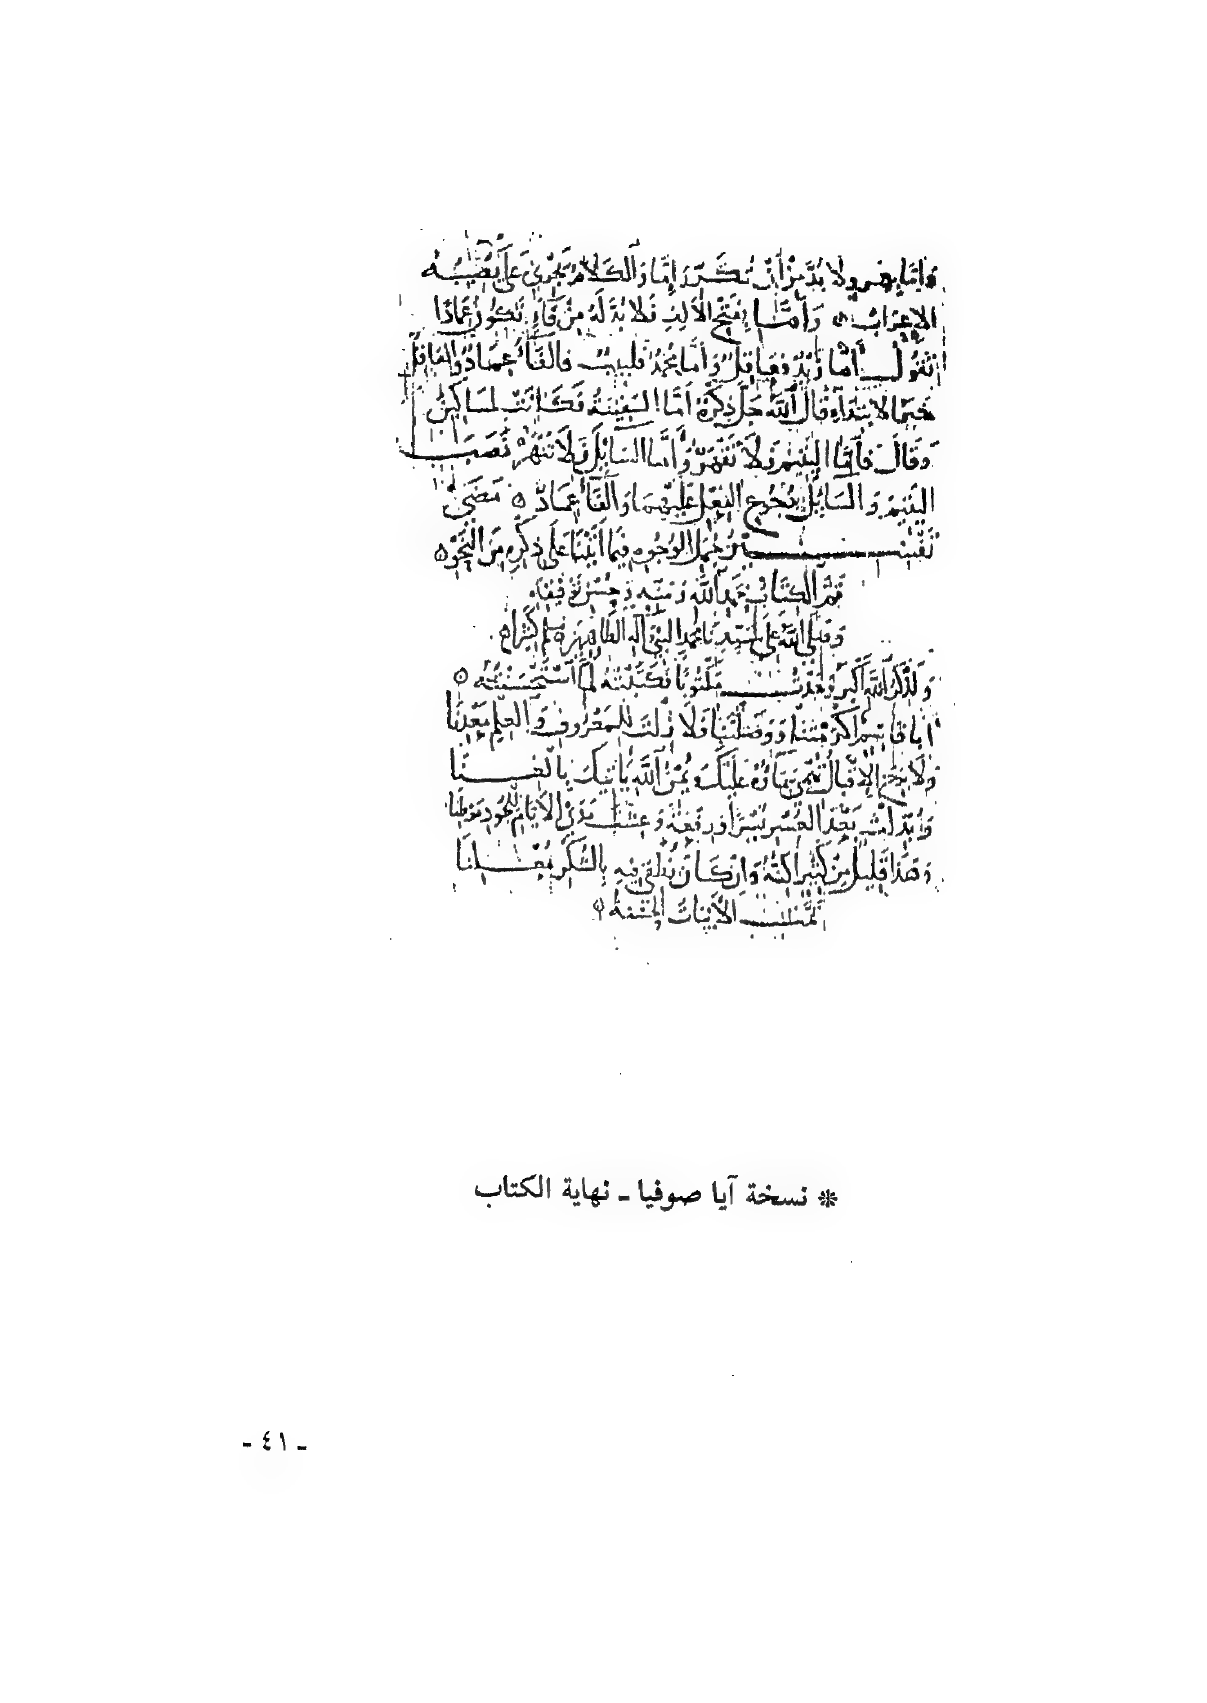 وَإِمَّا بعمرو ولا بُدَّ مِنْ أَنْ تُكَرِّرَ إِمَّا وَالكَلَامُ يَجْرِي عَلَى نصيبه
الإعْرَابُ وَأَمَّا بِفَتْحِ الأَلِفِ فَلَا بُدَّ لَهُ مِنْ فَاءٍ تَكُونُ عِمَادًا
تَقُولُ أَمَّا زَيْدٌ فَعَاقِلٌ وَأَمَّا مُحَمَّدٌ فلبيب فالفَاءُ عِمَادٌ وَالعَاقِلُ
خَبَر الابْتِدَاءِ قَالَ اللَّهُ جَلَّ ذِكْرُهُ أَمَّا السَّفِينَةُ فَكَانَتْ لِمَسَاكِينَ
وَقَالَ فَأَمَّا اليَتِيمَ فَلَا تَقْهَرْ وَأَمَّا السَّائِلَ فَلَا تَنْهَرْ نَصَبَ
اليَتِيمَ وَالسَّائِلَ بِرُجُوعِ الفِعْلِ عَلَيْهِمَا وَالفَاءُ عِمَادٌ مَضَى
تَفْسِيرُ جُمَلِ الوُجُوهِ فِيمَا أَتَيْنَا عَلَى ذِكْرِهِ مِنَ النَّحْوِ
تَمَّ الكِتَابُ بحَمْدِ اللَّهِ وَمَنِّهِ وحُسْنِ تَوْفِيقِهِ
وَصَلَّى اللَّهُ عَلَى سيدنا محمد النبي وآله الطاهرين وسلم كثيرا
وَلَذِكْرُ اللَّهِ أَكْبَرُ وَجَدْتُ مَكْتُوبًا فَكَتَبْتُهُ لَمَّا اسْتَحْسَنْتُهُ
أبا قاسم أكرمتنا ووصلتنا فَلَا زِلْتَ لِلْمَعْرُوفِ وَالعِلْمِ مَعْدِنَا
وَلَا الإقْبَالُ عَلَيْكَ اللَّهُ يَأْتِيكَ بِالغِنَا
بَعْدَ العُسْرِ يُسْرًا وَرِفْعَةً الأَيَّامِ
وَهَذَا قَلِيلٌ مِنْ كَثِيرٍ وَإِنْ كَانَ فِيهِ بِالشُّكْرِ
تمت الأبيات الحسنة
* نسخة آيا صوفيا ـ نهاية الكتاب
ـ ٤١ ـ